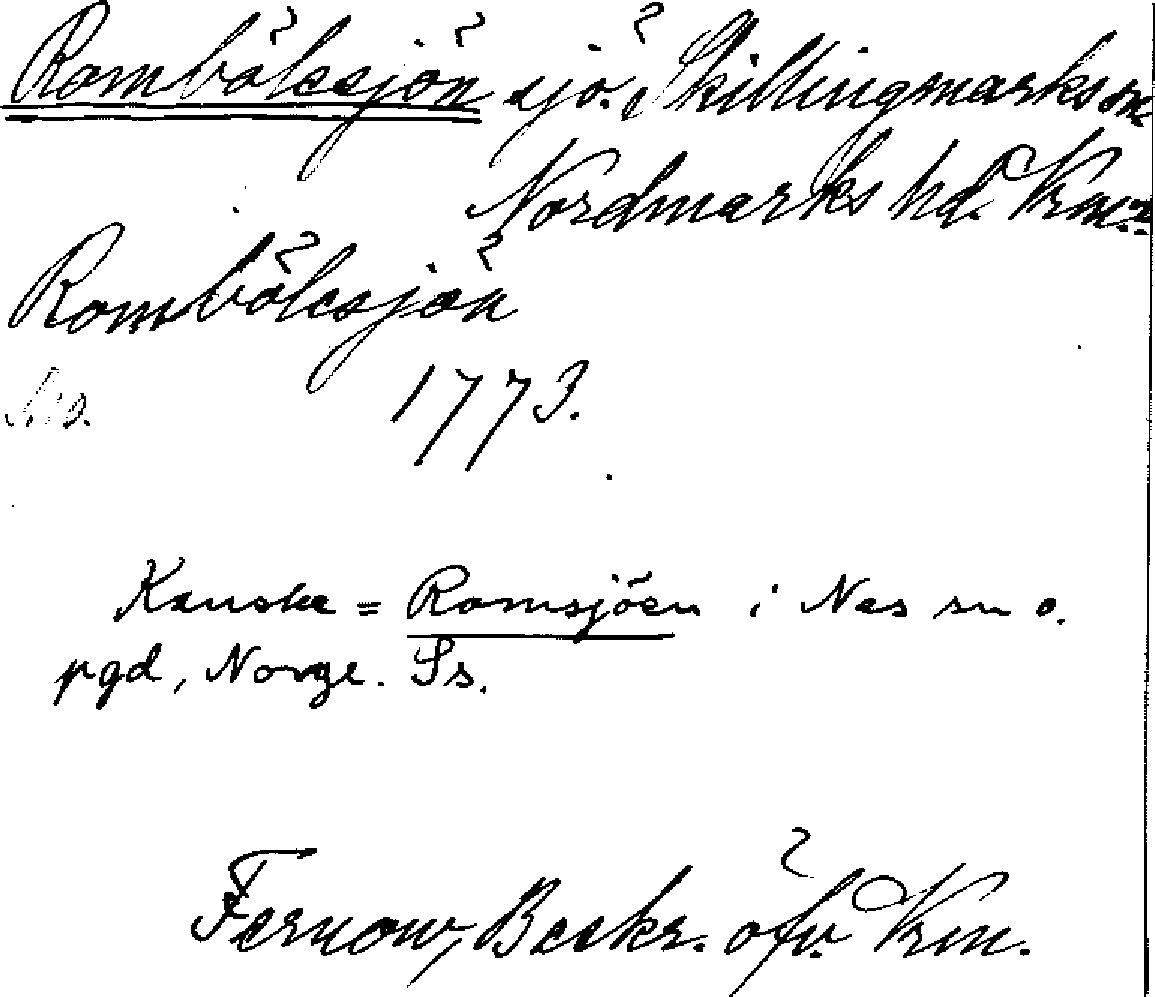 Rombölesjön sjö. i Skillingmarks sn
Nordmarks hd. Vrml.
Rombölesjön
1773.
Kanske = Romsjöen i Nes sn o.
pgd, Norge. Ss.
Fernow, Beskr. öfv. Vrm.